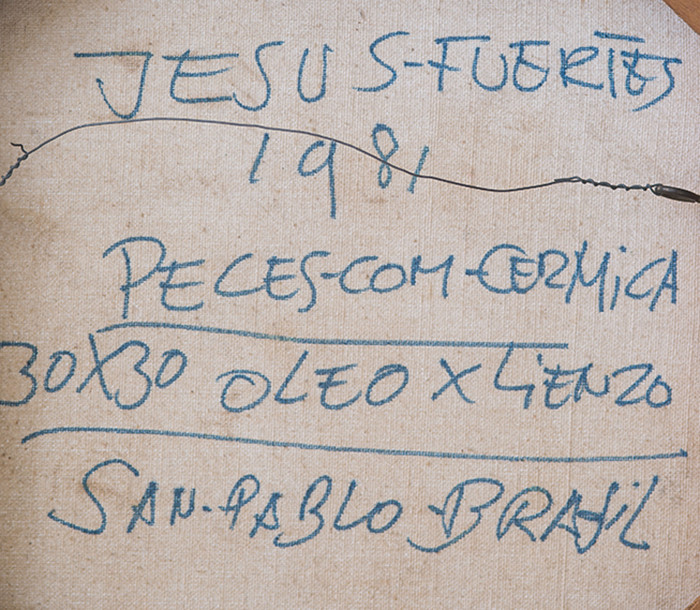 JESUS-FUERTES
1981
PECES-COM-CERMiCA
30X30 OLEO X LiENZO
SAN-PABLO-BRASiL